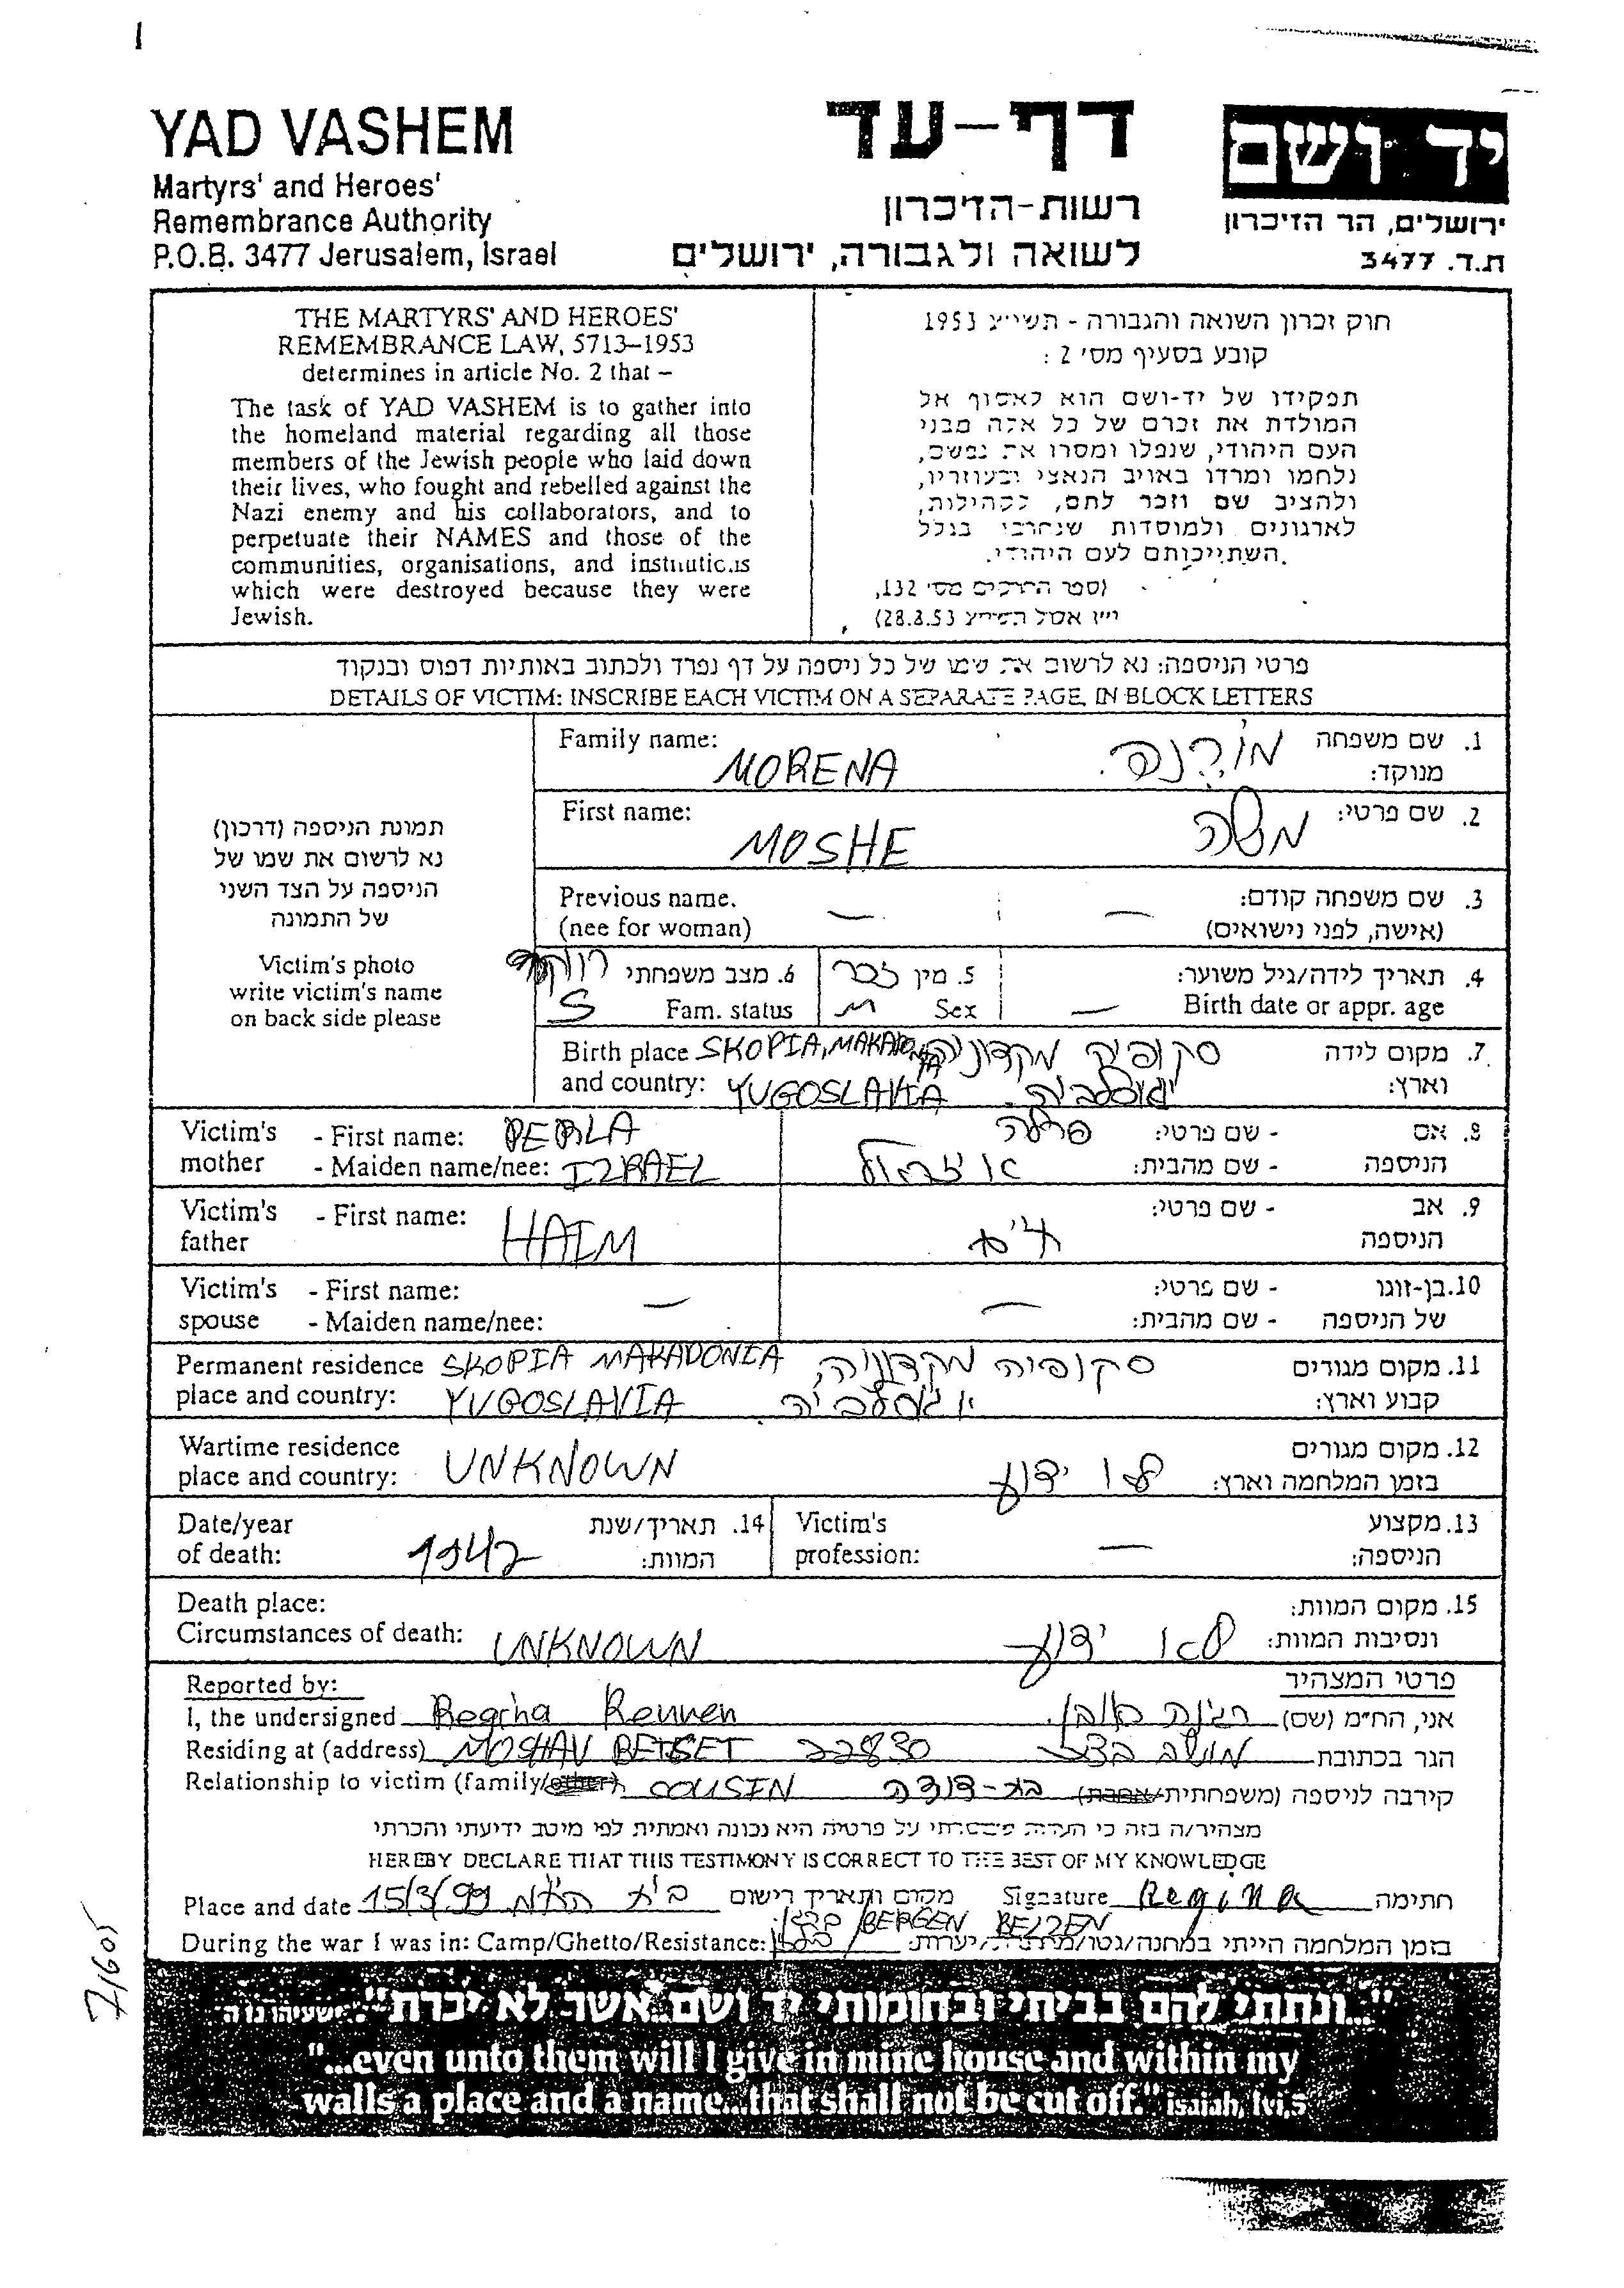 YAD VASHEM
Martyrs' and Heroes'
Remembrance Authority
P.O.B. 3477 Jerusalem, Israel
דף-עד
רשות-הזיכרון
לשואה ולגבורה, ירושלים
יד ושם
ירושלים, הר הזיכרון
ת.ד. 3477
THE MARTYRS' AND HEROES'
REMEMBRANCE LAW, 5713–1953
determines in article No. 2 that –
The task of YAD VASHEM is to gather into
the homeland material regarding all those
members of the Jewish people who laid down
their lives, who fought and rebelled against the
Nazi enemy and his collaborators, and to
perpetuate their NAMES and those of the
communities, organisations, and institutions
which were destroyed because they were
Jewish.
חוק זכרון השואה והגבורה - תשי״ג 1953
קובע בסעיף מס׳ 2 :
תפקידו של יד-ושם הוא לאסוף אל
המולדת את זכרם של כל אלה מבני
העם היהודי, שנפלו ומסרו את נפשם,
נלחמו ומרדו באויב הנאצי ובעוזריו,
ולהציב שם וזכר להם, לקהילות,
לארגונים ולמוסדות שנחרבו בגלל
השתייכותם לעם היהודי.
(ספר החוקים מס׳ 132,
י״ז אלול תשי״ג 28.8.53)
פרטי הניספה: נא לרשום את שמו של כל ניספה על דף נפרד ולכתוב באותיות דפוס ובנקוד
DETAILS OF VICTIM: INSCRIBE EACH VICTIM ON A SEPARATE PAGE, IN BLOCK LETTERS
תמונת הניספה (דרכון)
נא לרשום את שמו של
הניספה על הצד השני
של התמונה
Victim's photo
write victim's name
on back side please
Family name: MORENA מורנה 1. שם משפחה
מנוקד:
First name: MOSHE משה 2. שם פרטי:
Previous name. — — 3. שם משפחה קודם:
(nee for woman) (אישה, לפני נישואים)
רווק 6. מצב משפחתי זכר 5. מין 4. תאריך לידה/גיל משוער:
S Fam. status M Sex — Birth date or appr. age
Birth place SKOPIA, MAKADONIA סקופיה מקדוניה 7. מקום לידה
and country: YUGOSLAVIA יגוסלביה וארץ:
Victim's - First name: PERLA פרלה - שם פרטי: 8. אם
mother - Maiden name/nee: IZRAEL איזראל - שם מהבית: הניספה
Victim's - First name: - שם פרטי: 9. אב
father HAIM חיים הניספה
Victim's - First name: — — - שם פרטי: 10. בן-זוגו
spouse - Maiden name/nee: - שם מהבית: של הניספה
Permanent residence SKOPIA MAKADONIA סקופיה מקדוניה, 11. מקום מגורים
place and country: YUGOSLAVIA יוגוסלביה קבוע וארץ:
Wartime residence 12. מקום מגורים
place and country: UNKNOWN לא ידוע בזמן המלחמה וארץ:
Date/year 14. תאריך/שנת Victim's 13. מקצוע
of death: 1942 המוות: profession: — הניספה:
Death place: 15. מקום המוות:
Circumstances of death: UNKNOWN לא ידוע ונסיבות המוות:
Reported by: פרטי המצהיר
I, the undersigned Regina Reuven רגינה ראובן אני, הח״מ (שם)
Residing at (address) MOSHAV BETSET 22830 מושב בצת הגר בכתובת
Relationship to victim (family/other) COUSIN בת-דודה קירבה לניספה (משפחתית/אחרת)
מצהיר/ה בזה כי העדות שמסרתי על פרטיה היא נכונה ואמתית לפי מיטב ידיעתי והכרתי
HEREBY DECLARE THAT THIS TESTIMONY IS CORRECT TO THE BEST OF MY KNOWLEDGE
Place and date 15/3/99 מקום ותאריך רישום Signature Regina חתימה
BERGEN BELZEN
During the war I was in: Camp/Ghetto/Resistance: בזמן המלחמה הייתי במחנה/גטו/מחתרת/יערות:
"...ונתתי להם בביתי ובחומותי יד ושם...אשר לא יכרת" ישעיהו נו ה
"...even unto them will I give in mine house and within my
walls a place and a name...that shall not be cut off." isaiah, lvi,5
71605